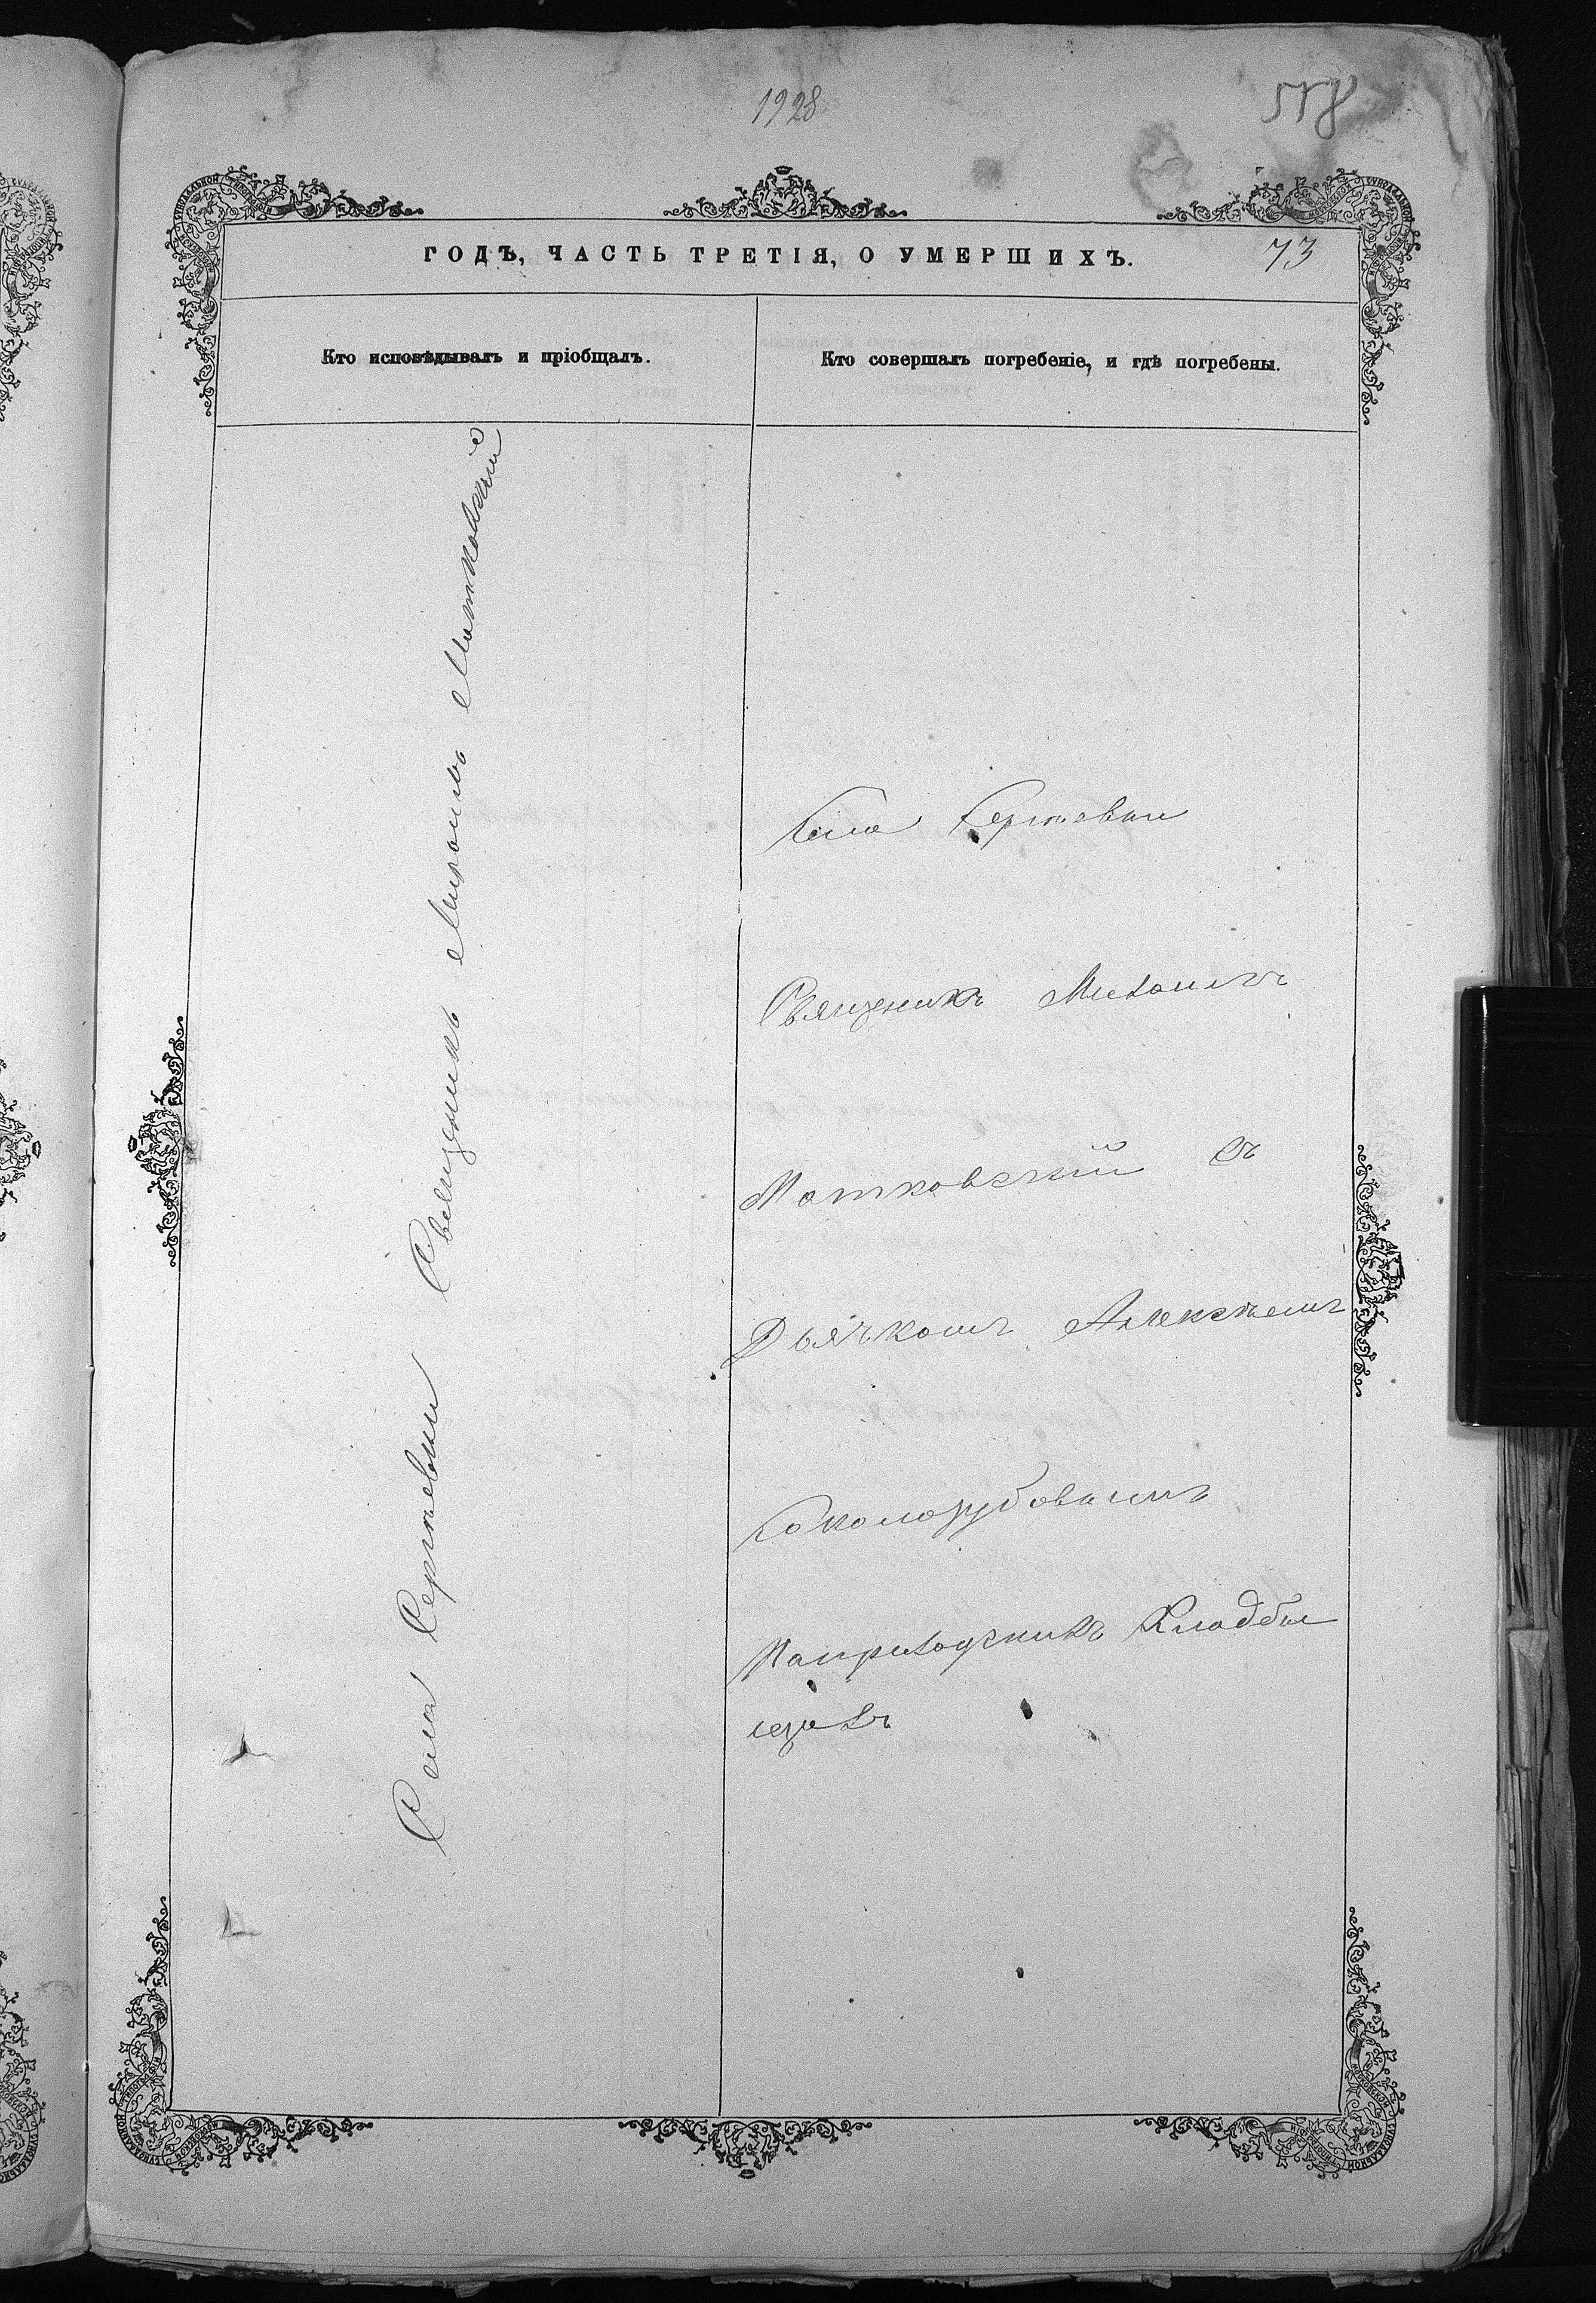 1928
558
ГОДЪ, ЧАСТЬ ТРЕТІЯ, О УМЕРШИХЪ.
73
Кто исповѣдывалъ и пріобщалъ.
Кто совершалъ погребеніе, и гдѣ погребены.
Села Сергѣевки Священникъ Михаилъ Матковскій
Села Сергѣевки
Священникъ Михаилъ
Матковскій съ
Дьячкомъ Алексѣемъ
Соколозубовымъ
На приходскихъ Кладби
щахъ